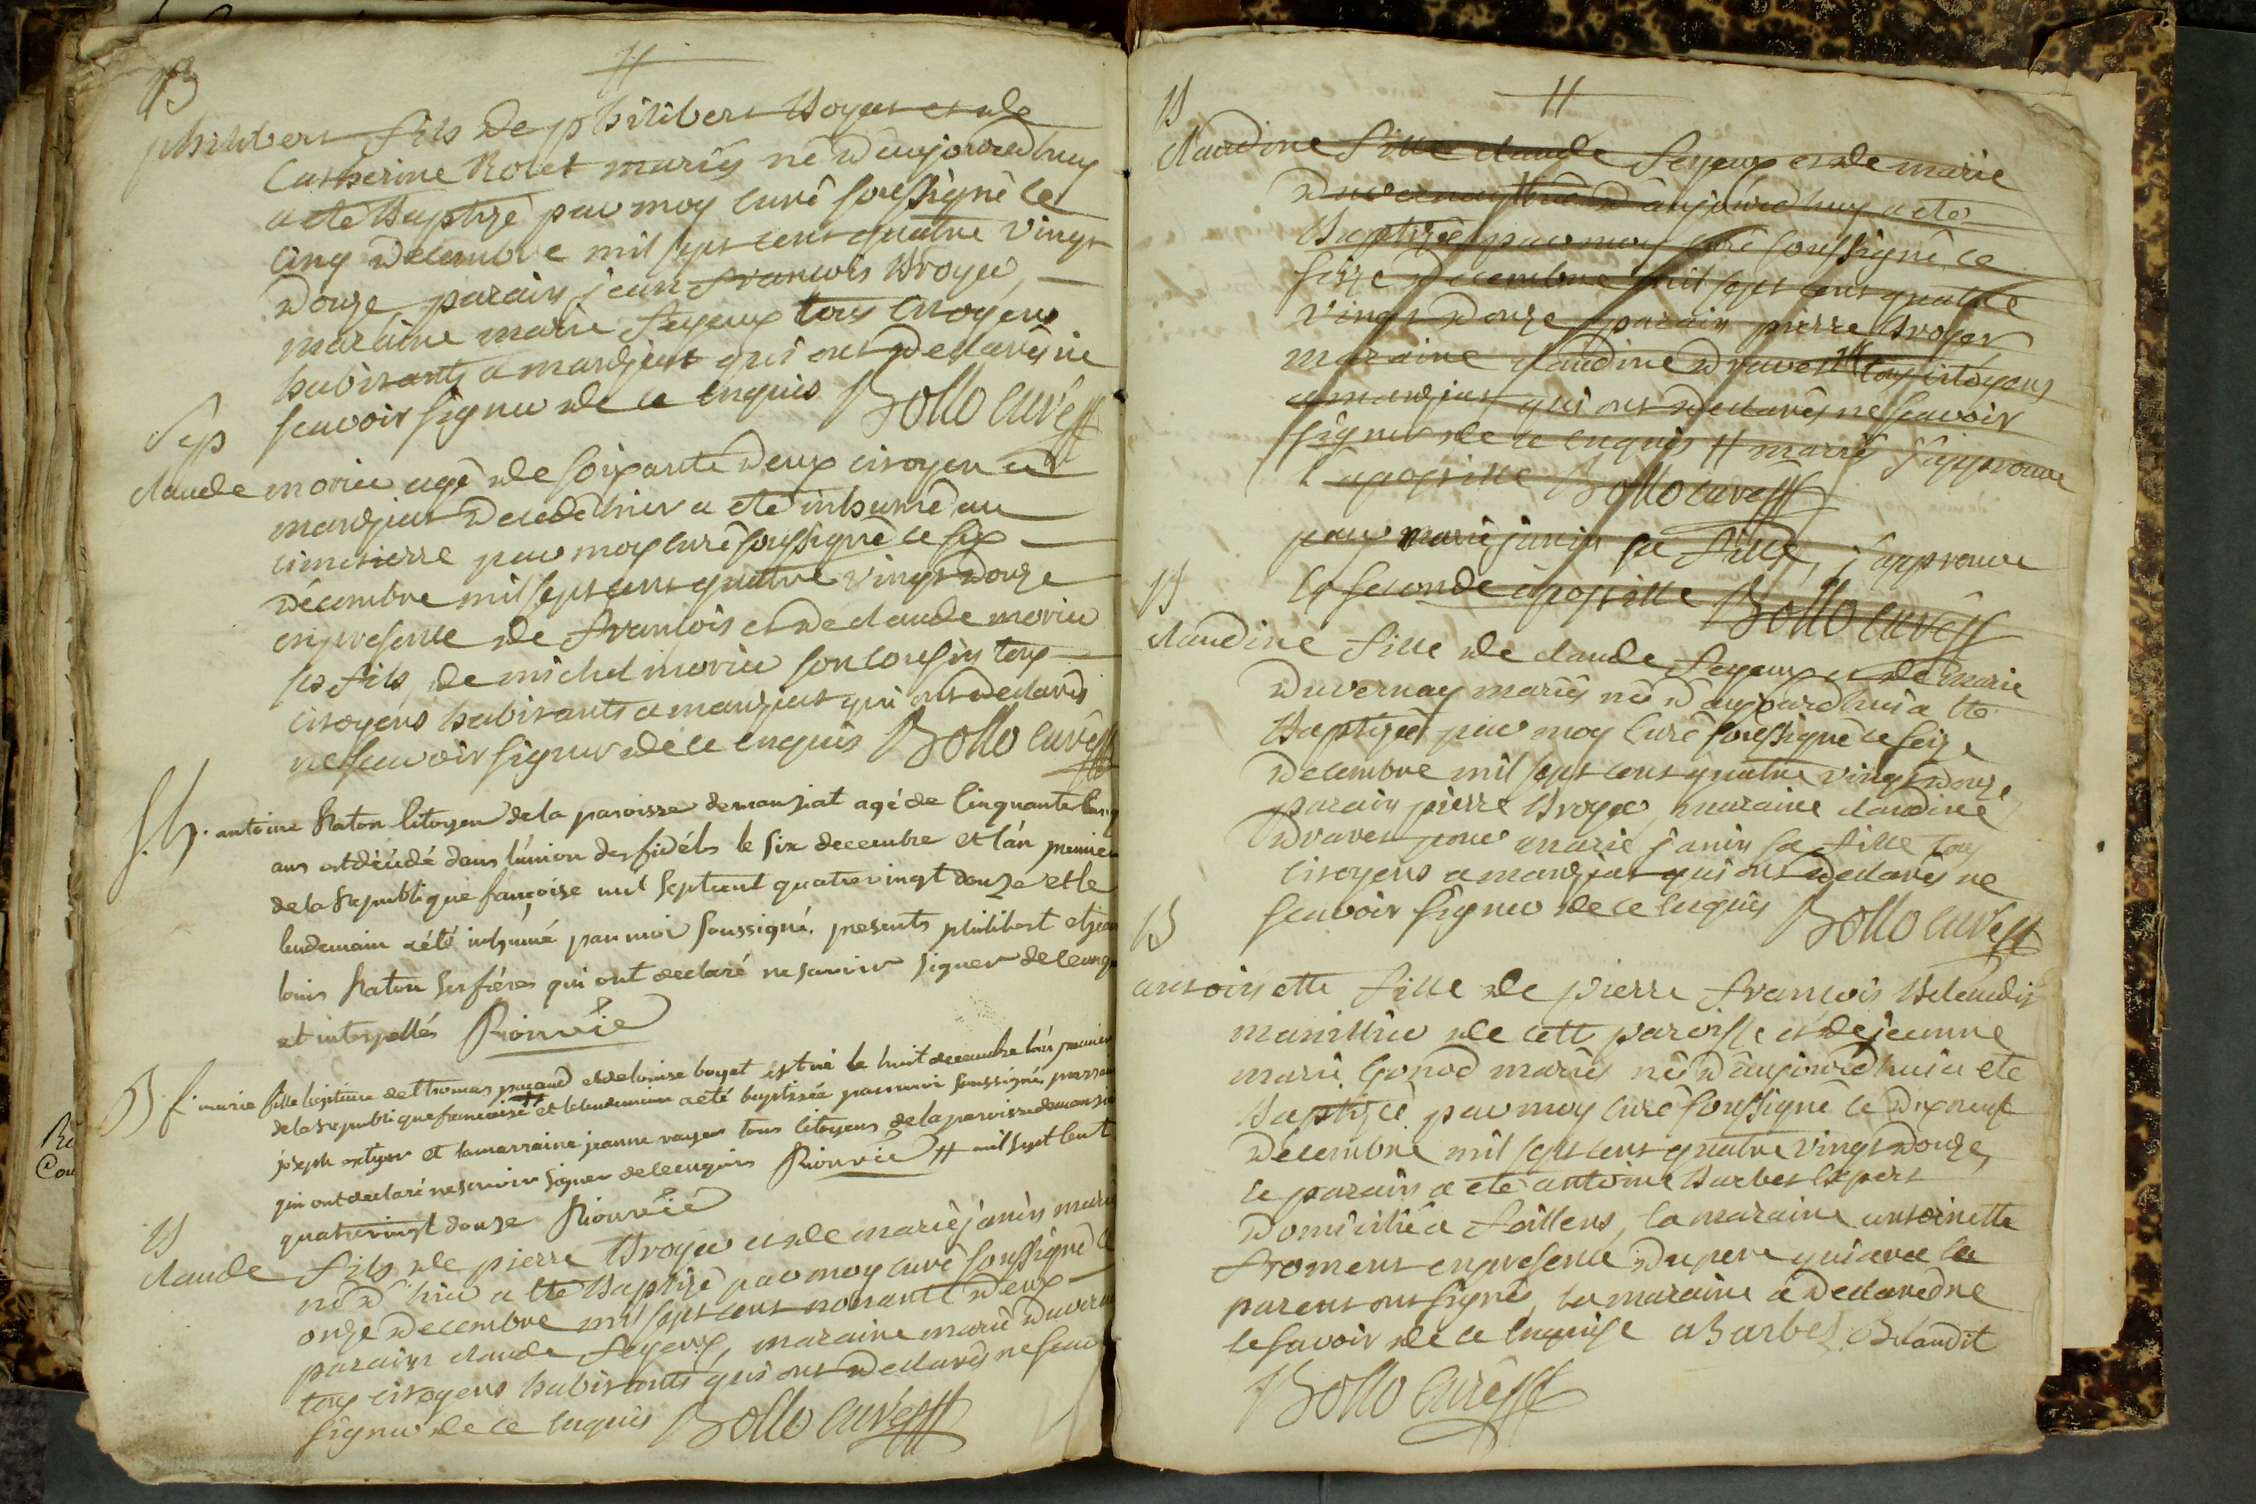 B
philibert fils de philibert Boyat et de
Catherine Rolet mariés né d'aujourdhuy
a eté Baptizé par moy curé soussigné le
cinq decembre mil sept cent quatre vingt
douze, parain jean francois Broyer,
maraine marie feyeux tous citoyens
habitants a manziat qui ont declarés ne
scavoir signer de ce enquis Bollo curé
Sep
claude morier agé de soixante deux citoyen a
manziat decedé hier a eté inhumé au
cimetierre par moy curé soussigné le six
décembre mil sept cent quatre vingt douze
en presence de francois et de claude morier
ses fils, de michel morier son cousin tous
citoyens habitants a manziat qui ont declarés
ne scavoir signer de ce enquis Bollo curé
S. h. antoine Raton citoyen de la paroisse de manziat agé de cinquante cinq
ans est décédé dans l'union des fidéls le six decembre et l'an premier
de la Republique francoise mil sept cent quatre vingt douze et le
lendemain a été inhumé par moi soussigné. presents philibert et jean
louis Raton ses fréres qui ont declaré ne savoir signer de ce enquis
et interpellés Rionvié
B. f. marie fille legitime de thomas pacaud et de louise boyat est né le huit decembre l'an premier
de la republique francoise # et le lendemain a été baptisée par moi soussigné, parrain
joseph et la marraine jeanne tous citoyens de la paroisse de manziat
qui ont declaré ne savoir signer de ce enquis Rionvié # mil sept cent
quatre vingt douze Rionvié
B
claude fils de pierre Broyer et de marie janin mariés
né d'hier a eté Baptizé par moy curé soussigné le
onze decembre mil sept cent nonante deux
parain claude feyeux, maraine marie Duvernay
tous citoyens habitants qui ont declarés ne scavoir
signer de ce enquis Bollo curé
B
claudine fille claude feyeux et de marie
duvernay # né d'aujourdhuy a eté
Baptizée par moy curé soussigné le
seize decembre mil sept cent quatre
vingt douze, parain pierre Broyer
maraine claudine dravet # tous citoyens
a manziat qui ont declarés ne scavoir
signer de ce enquis # mariés j'approuve
l'apostille Bollo curé
pour marie janin sa fille, j'approuve
la seconde apostille Bollo curé
B
claudine fille de claude feyeux et de marie
duvernay mariés né d'aujourdhui a eté
Baptizée par moy curé soussigné le seize
decembre mil sept cent quatre vingt douze,
parain pierre Broyer, maraine claudine
dravet pour marie janin sa fille tous
citoyens a manziat qui ont declarés ne
scavoir signer de ce enquis Bollo curé
B
antoinette fille de pierre francois Belaudit
manillier de cette paroisse et de jeanne
marie Gonod mariés né d'aujourdhui a eté
Baptizée par moy curé soussigné le dix neuf
décembre mil sept cent quatre vingt douze,
le parain a eté antoine Barbet expert
domicilié a feillens, la maraine antoinette
froment en presence du pere qui avec le
parent ont signés, la maraine a declaré ne
le savoir de ce enquise a Barbet Belaudit
Bollo curé